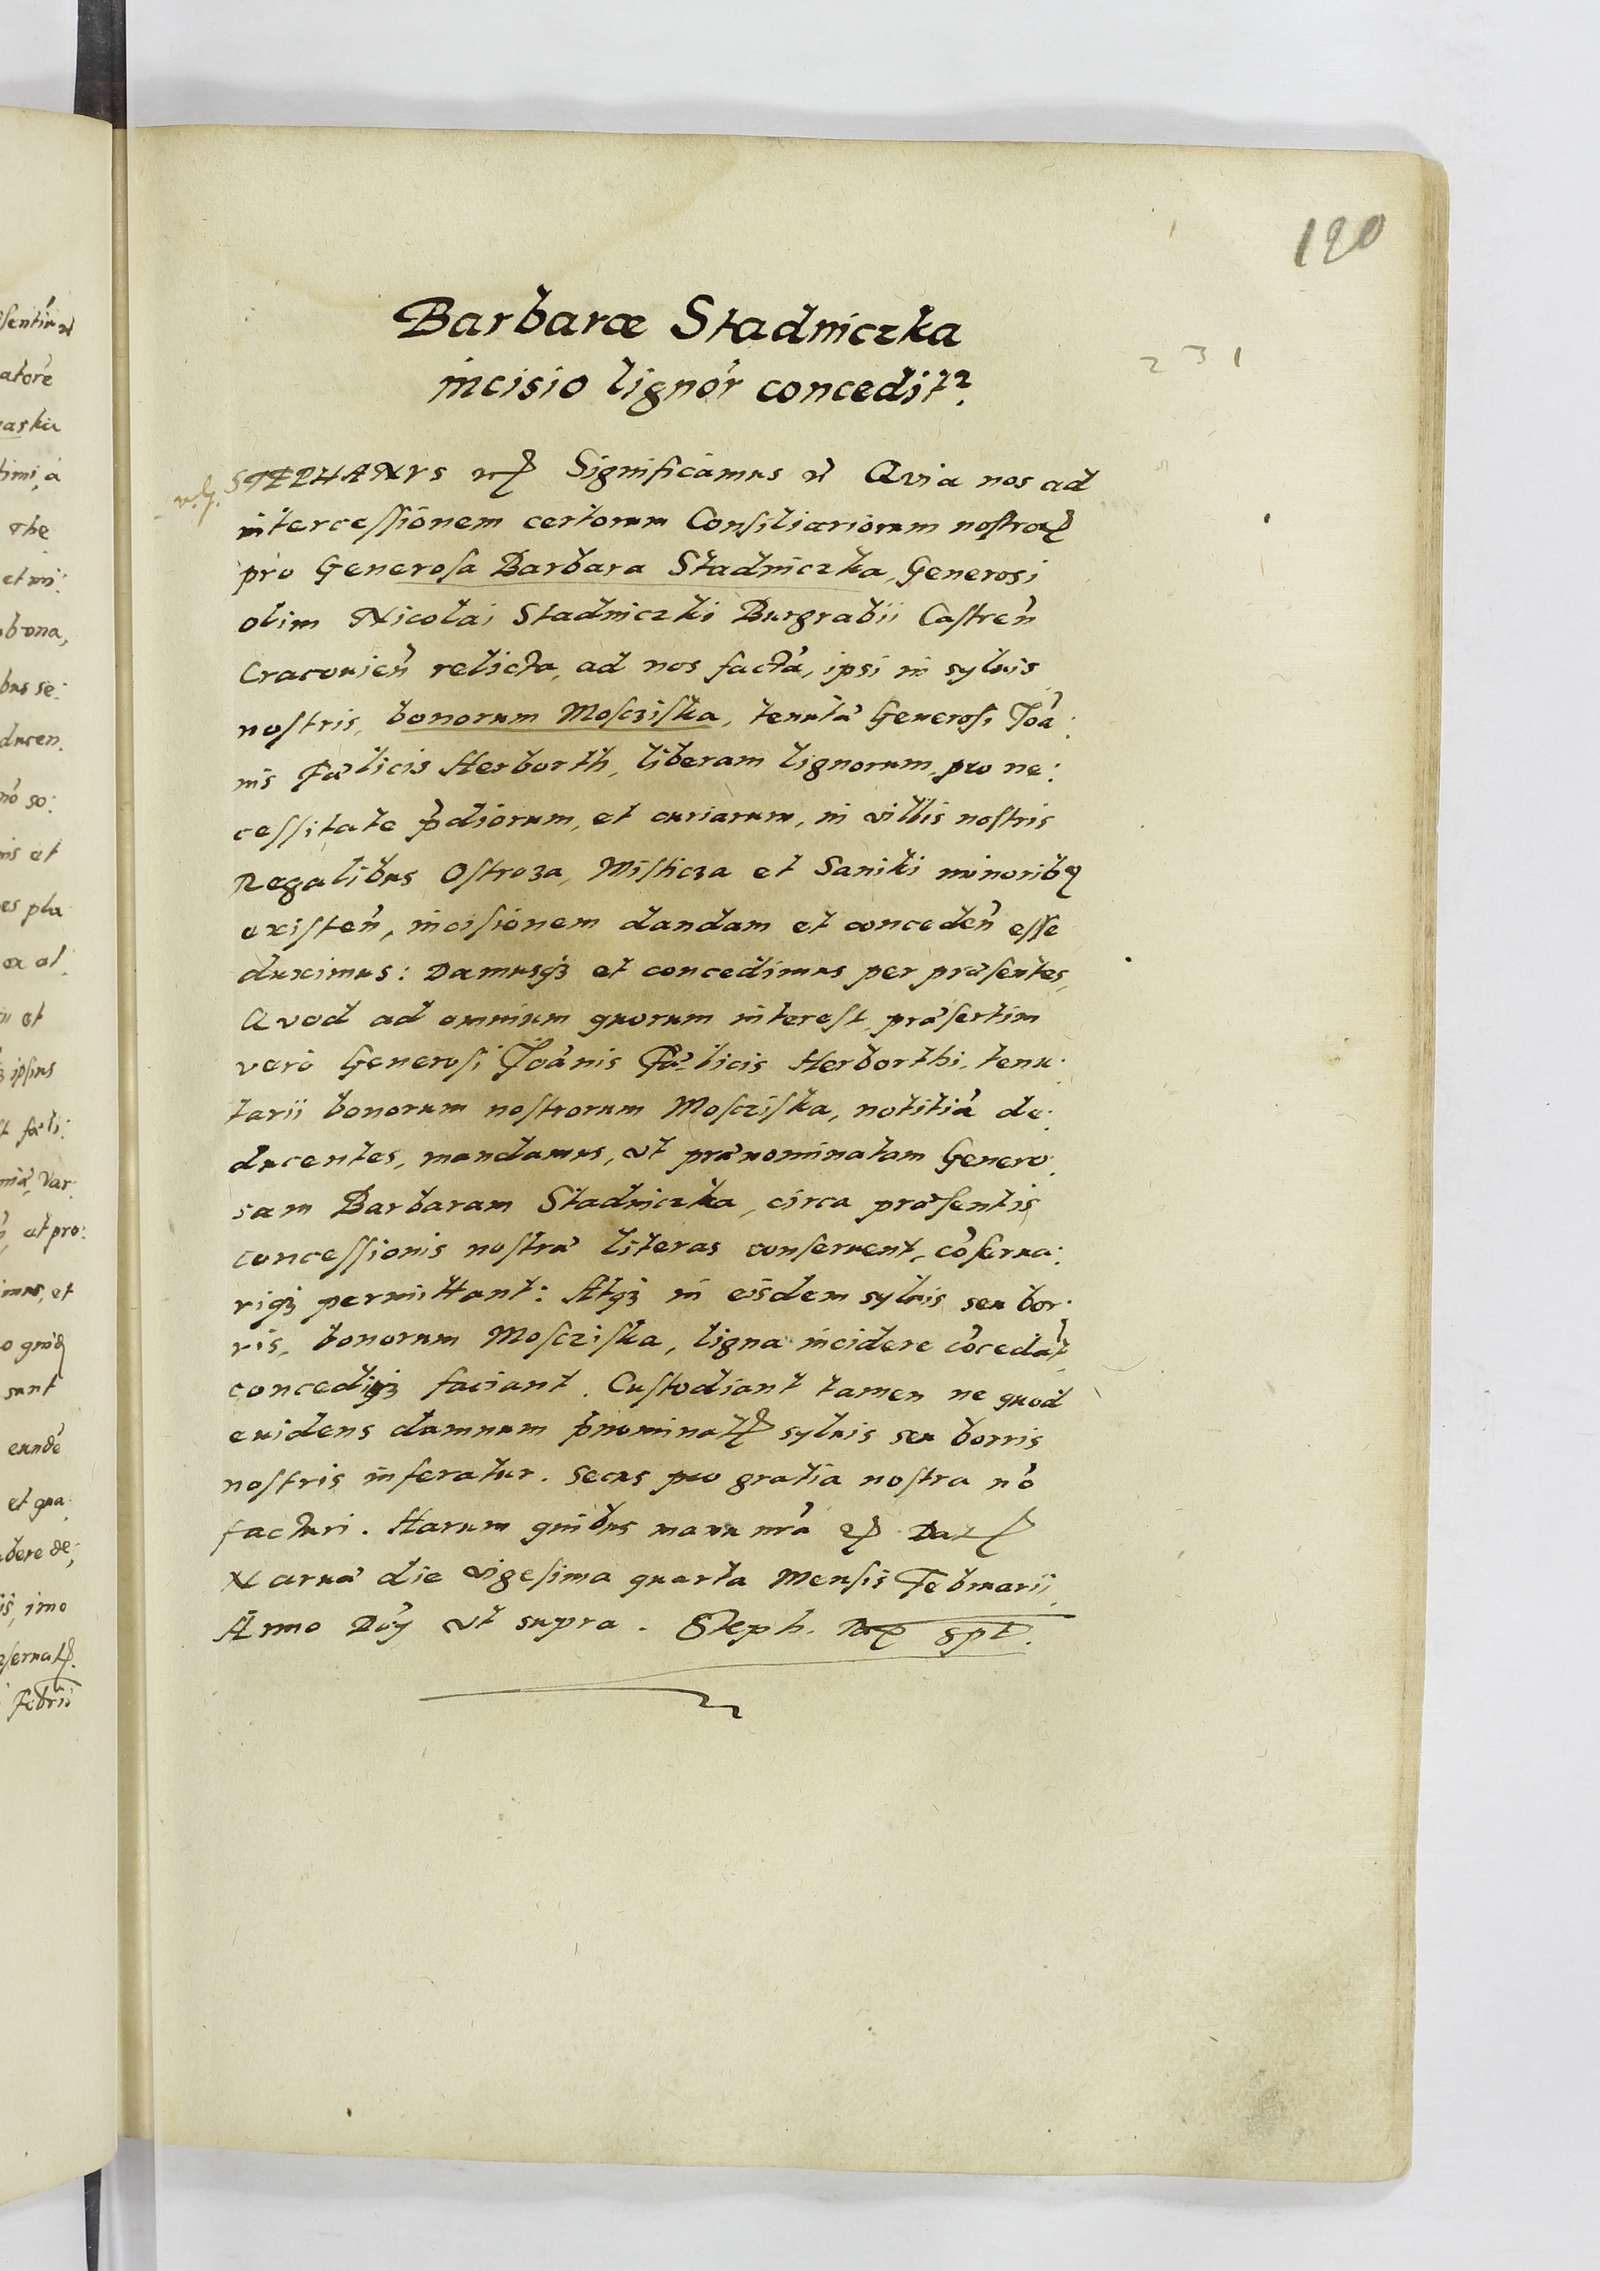 190
231
Barbaræ Stadniczka
incisio lignor̄ concedit̄.
STEPHANVS etc̄ Significamus etc Qvia nos ad
intercessionem certorum Consiliariorum nostror̄
pro Generosa Barbara Stadniczka, Generosi
olim Nicolai Stadniczki Burgrabii Castreñ
Cracouieñ relicta, ad nos factā, ipsi in syluis
nostris, bonorum Mosciska, tenutæ Generosi Joā:
nis Fælicis Herborth, liberam lignorum, pro ne:
cessitate p̄diorum, et curiarum, in villis nostris
Regalibus Ostroza, Misticza et Saniki minorib9
existeñ, incisionem dandam et concedeñ esse
duximus: Damusq3 et concedimus per præsentes,
Qvod ad omnium quorum interest, præsertim
vero Generosi Joānis Fælicis Herborthi, tenu:
tarii bonorum nostrorum Mosciska, notitiā de:
ducentes, mandamus, vt prænominatam Genero:
sam Barbaram Stadniczka, circa præsentis
concessionis nostræ literas conseruent, cōserua:
riq3 permittant: Atq3 in eisdem syluis seu bor:
ris, bonorum Mosciska, ligna incidere cōcedāt,
concediq3 faciant. Custodiant tamen ne quod
euidens damnum p̄nominat̄ syluis seu borris
nostris inferatur. Secus pro gratia nostra nō
facturi. Harum quibus manu nrā etc̄ Dat̄
Naruæ die vigesima quarta Mensis Februarii,
Anno Dn̄j vt supra. Steph. Rex sp̄t.